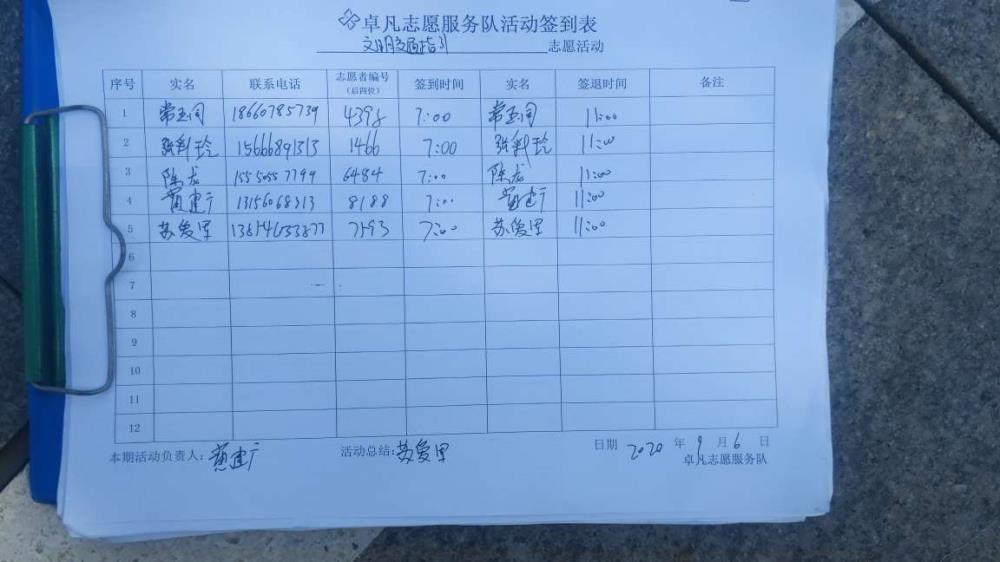 卓凡志愿服务队活动签到表
文明交通指引 志愿活动
序号 实名 联系电话 志愿者编号（后四位） 签到时间 实名 签退时间 备注
1 常玉同 18660785739 4398 7:00 常玉同 11:00
2 张彩玲 15666891313 1466 7:00 张彩玲 11:00
3 陈龙 15550557799 6484 7:00 陈龙 11:00
4 黄建广 13156068313 8188 7:00 黄建广 11:00
5 苏爱里 7593 7:00 苏爱里 11:00
6
7
8
9
10
11
12
本期活动负责人：黄建广 活动总结：苏爱里 日期 2020 年 9 月 6 日
卓凡志愿服务队